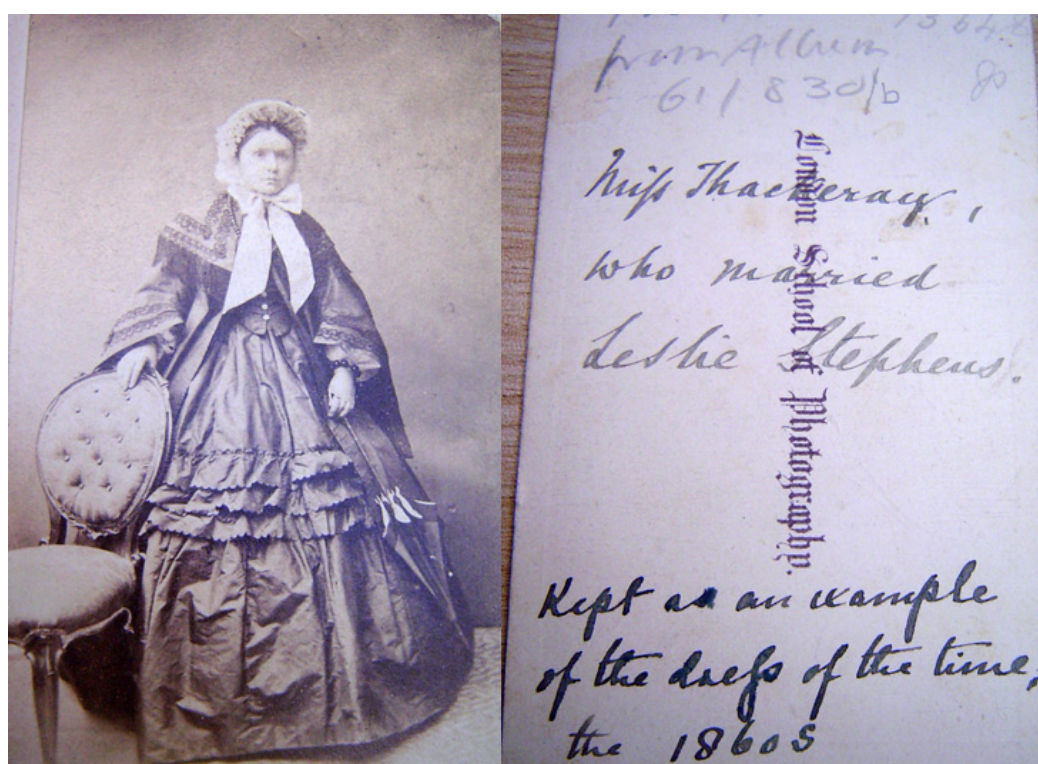 from Album
61/830/b
Miſs Thackeray,
who married
Leslie Stephens.
London School of Photography.
Kept as an example
of the dreſs of the time,
the 1860s